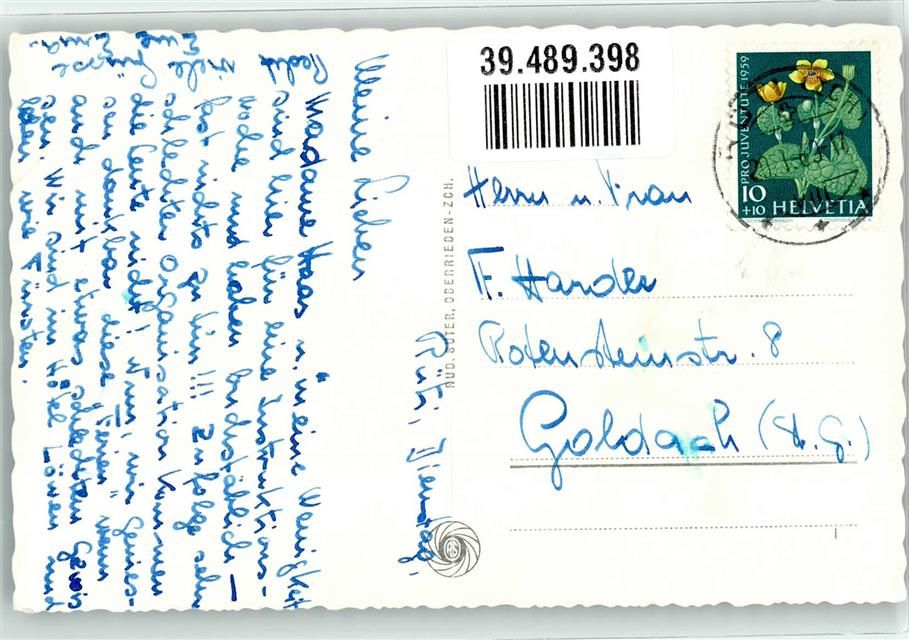 39.489.398
PRO JUVENTUTE 1959
10
+10 HELVETIA
Herrn u. Frau
F. Harder
Rotensteinstr. 8
Goldach (St. G.)
RUD. SUTER, OBERRIEDEN-ZCH.
Rüti, Dienstag.
Meine Lieben
Madame Haas u. meine Wenigkeit
sind hier für eine Instruktions-
woche und haben buchstäblich
fast nichts zu tun!!! Zufolge sehr
schlechter Organisation kommen
die Leute nicht! Nun, wir genies-
sen dankbar diese Ferien wenn
auch mit etwas schlechtem Gewis-
sen. Wir sind im Hotel Löwen und
leben wie Fürsten.
Recht viele Grüsse
Eure
Erna.